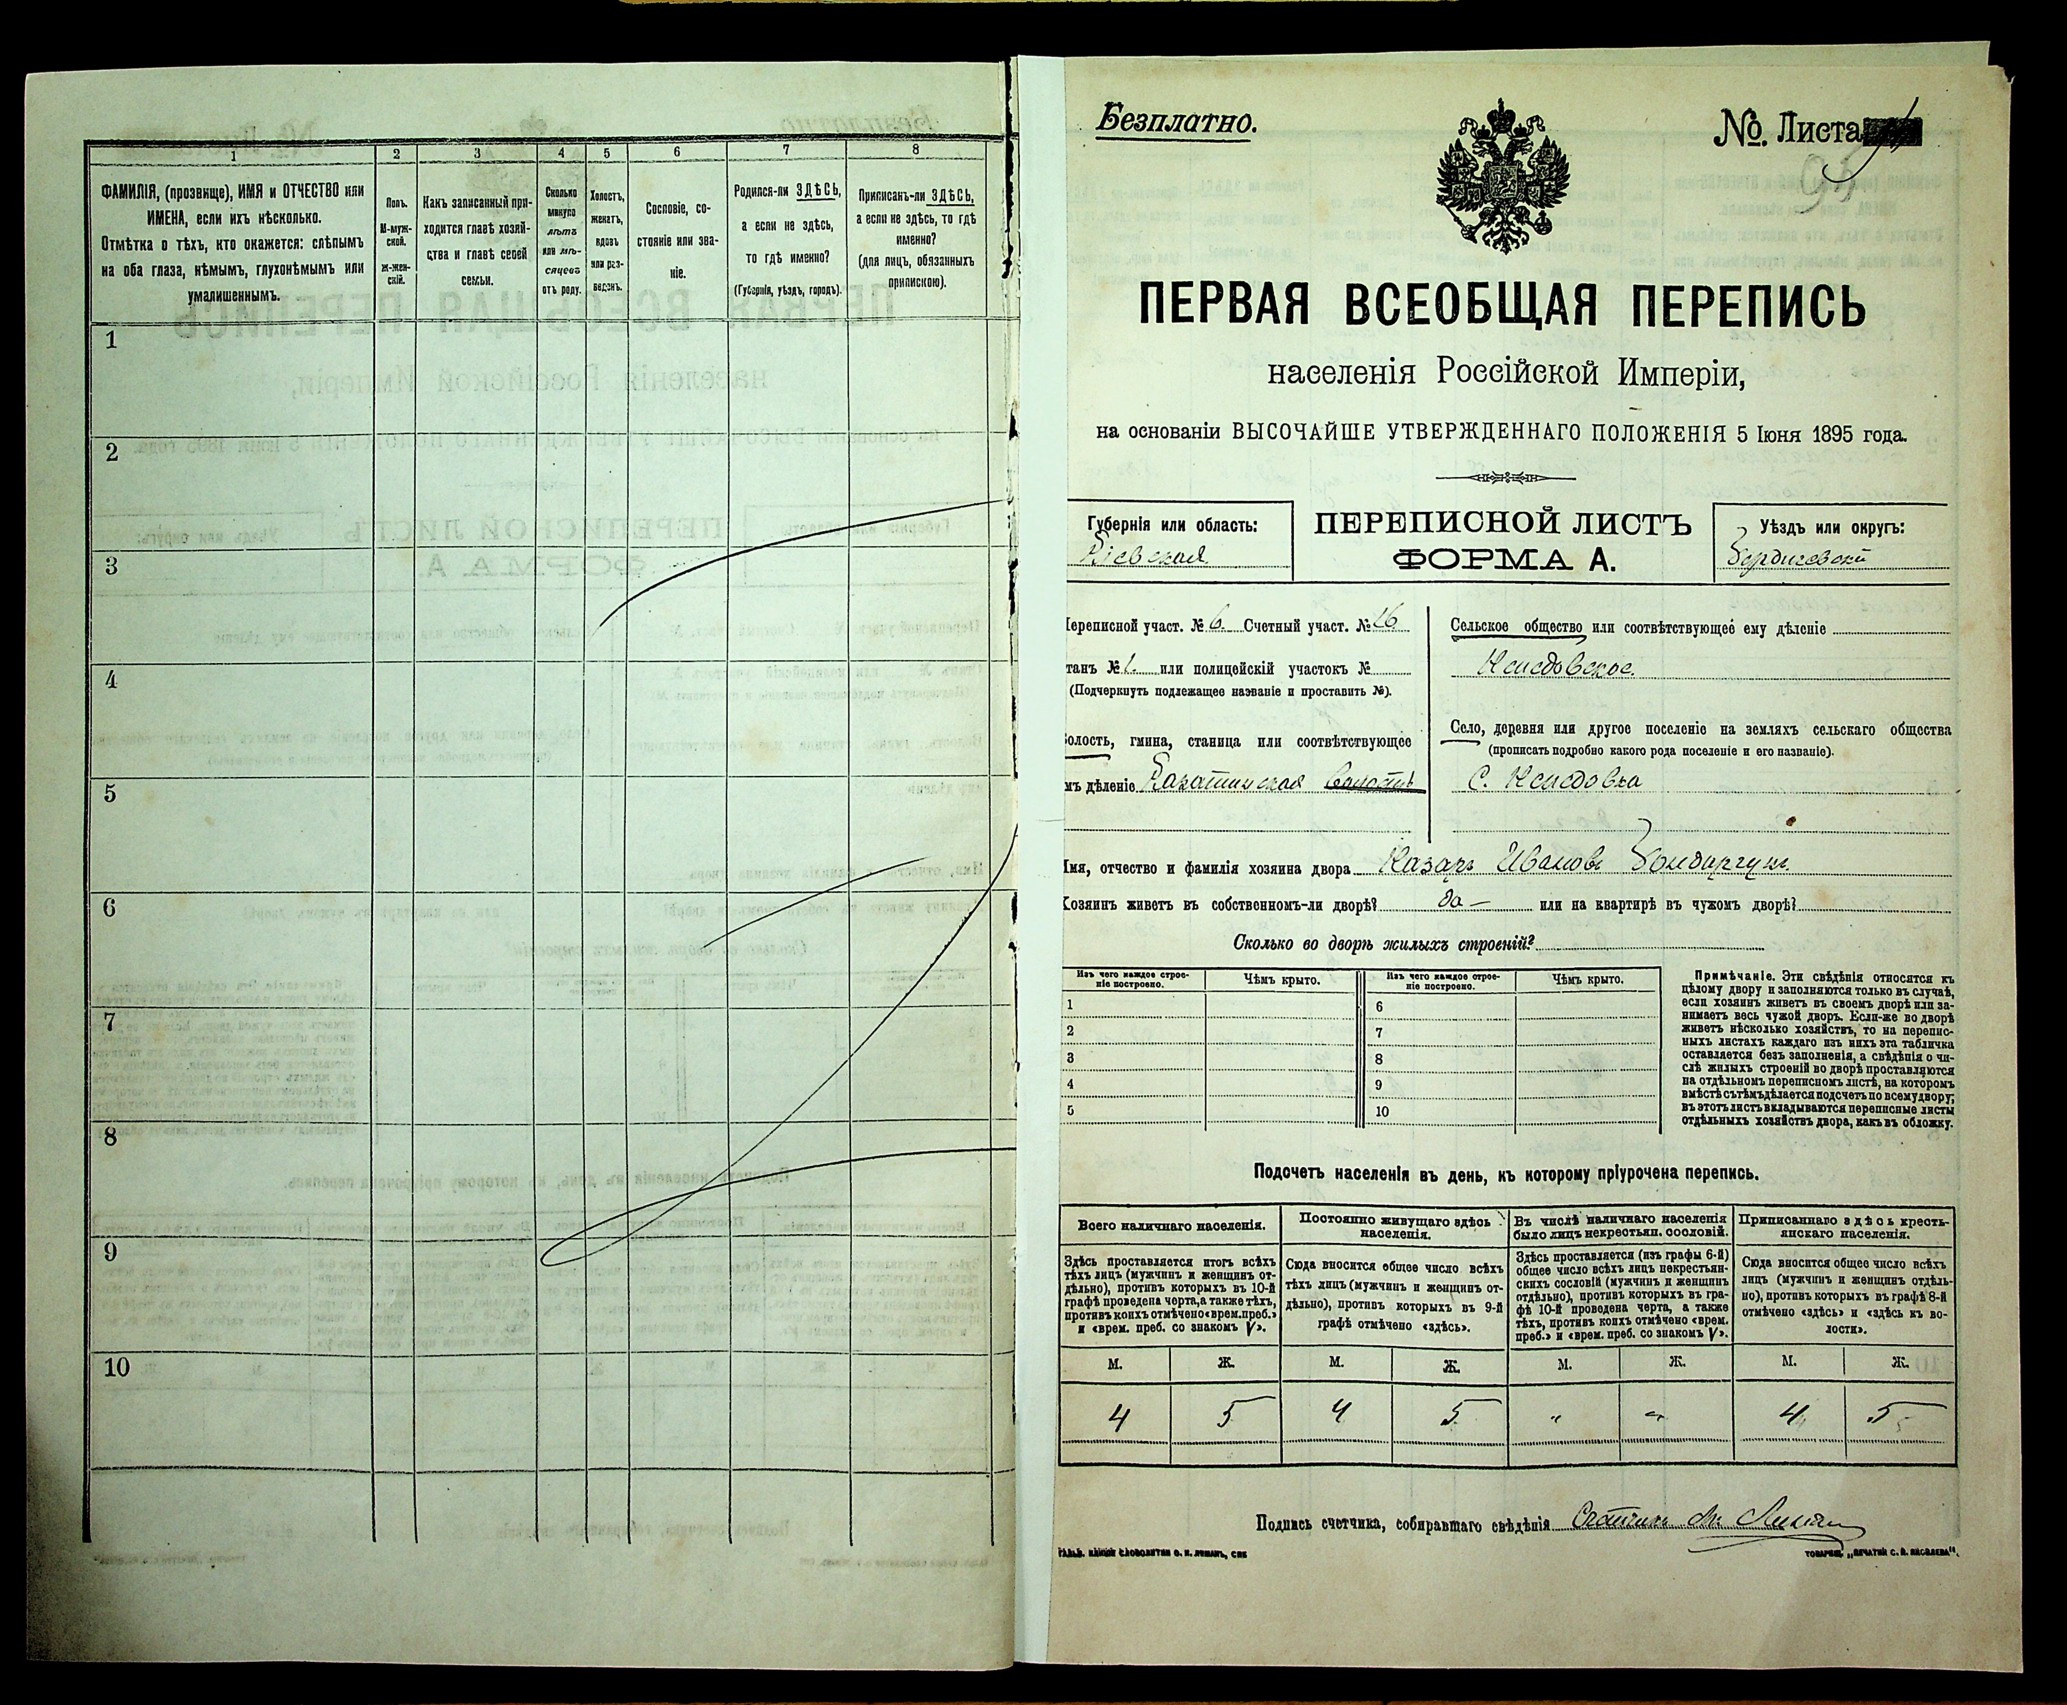 1 2 3 4 5 6 7 8
ФАМИЛІЯ, (прозвище), ИМЯ и ОТЧЕСТВО или
ИМЕНА, если ихъ нѣсколько.
Отмѣтка о тѣхъ, кто окажется: слѣпымъ
на оба глаза, нѣмымъ, глухонѣмымъ или
умалишеннымъ.
Полъ.
М-муж-
ской.
Ж-жен-
скій.
Какъ записанный при-
ходится главѣ хозяй-
ства и главѣ своей
семьи.
Сколько
минуло
лѣтъ
или мѣ-
сяцевъ
отъ роду.
Холостъ,
женатъ,
вдовъ
или раз-
веденъ.
Сословіе, со-
стояніе или зва-
ніе.
Родился-ли ЗДѢСЬ,
а если не здѣсь,
то гдѣ именно?
(Губернія, уѣздъ, городъ).
Приписанъ-ли ЗДѢСЬ,
а если не здѣсь, то гдѣ
именно?
(для лицъ, обязанныхъ
припискою).
1
2
3
4
5
6
7
8
9
10
Безплатно.
№. Листа
ПЕРВАЯ ВСЕОБЩАЯ ПЕРЕПИСЬ
населенія Россійской Имперіи,
на основаніи ВЫСОЧАЙШЕ УТВЕРЖДЕННАГО ПОЛОЖЕНІЯ 5 Іюня 1895 года.
Губернія или область:
Кіевская
ПЕРЕПИСНОЙ ЛИСТЪ
ФОРМА А.
Уѣздъ или округъ:
Бердичевскій
Переписной участ. № 6. Счетный участ. № 26
танъ № 1. или полицейскій участокъ №
(Подчеркнуть подлежащее названіе и проставить №).
Волость, гмина, станица или соотвѣтствующее
мъ дѣленіе Казатинская волость
Сельское общество или соотвѣтствующее ему дѣленіе
Село, деревня или другое поселеніе на земляхъ сельскаго общества
(прописать подробно какого рода поселеніе и его названіе).
С.
Имя, отчество и фамилія хозяина двора Назаръ Ивановъ Бондарчукъ
Хозяинъ живетъ въ собственномъ-ли дворѣ? да — или на квартирѣ въ чужомъ дворѣ?
Сколько во дворѣ жилыхъ строеній?
Изъ чего каждое строе-
ніе построено.
Чѣмъ крыто.
Изъ чего каждое строе-
ніе построено.
Чѣмъ крыто.
1 6
2 7
3 8
4 9
5 10
Примѣчаніе. Эти свѣдѣнія относятся къ
цѣлому двору и заполняются только въ случаѣ,
если хозяинъ живетъ въ своемъ дворѣ или за-
нимаетъ весь чужой дворъ. Если-же во дворѣ
живетъ нѣсколько хозяйствъ, то на перепис-
ныхъ листахъ каждаго изъ нихъ эта табличка
оставляется безъ заполненія, а свѣдѣнія о чи-
слѣ жилыхъ строеній во дворѣ проставляются
на отдѣльномъ переписномъ листѣ, на которомъ
вмѣстѣ съ тѣмъ дѣлается подсчетъ по всему двору;
въ этотъ листъ вкладываются переписные листы
отдѣльныхъ хозяйствъ двора, какъ въ обложку.
Подсчетъ населенія въ день, къ которому пріурочена перепись.
Всего наличнаго населенія.
Постоянно живущаго здѣсь
населенія.
Въ числѣ наличнаго населенія
было лицъ некрестьян. сословій.
Приписаннаго здѣсь кресть-
янскаго населенія.
Здѣсь проставляется итогъ всѣхъ
тѣхъ лицъ (мужчинъ и женщинъ от-
дѣльно), противъ которыхъ въ 10-й
графѣ проведена черта, а также тѣхъ,
противъ коихъ отмѣчено «врем. преб.»
и «врем. преб. со знакомъ V».
Сюда вносится общее число всѣхъ
тѣхъ лицъ (мужчинъ и женщинъ от-
дѣльно), противъ которыхъ въ 9-й
графѣ отмѣчено «здѣсь».
Здѣсь проставляется (изъ графы 6-й)
общее число всѣхъ лицъ некрестьян-
скихъ сословій (мужчинъ и женщинъ
отдѣльно), противъ которыхъ въ гра-
фѣ 10-й проведена черта, а также
тѣхъ, противъ коихъ отмѣчено «врем.
преб.» и «врем. преб. со знакомъ V».
Сюда вносится общее число всѣхъ
лицъ (мужчинъ и женщинъ отдѣль-
но), противъ которыхъ въ графѣ 8-й
отмѣчено «здѣсь» и «здѣсь къ во-
лости».
М. Ж. М. Ж. М. Ж. М. Ж.
4 5 4 5 " " 4 5
Подпись счетчика, собиравшаго свѣдѣнія